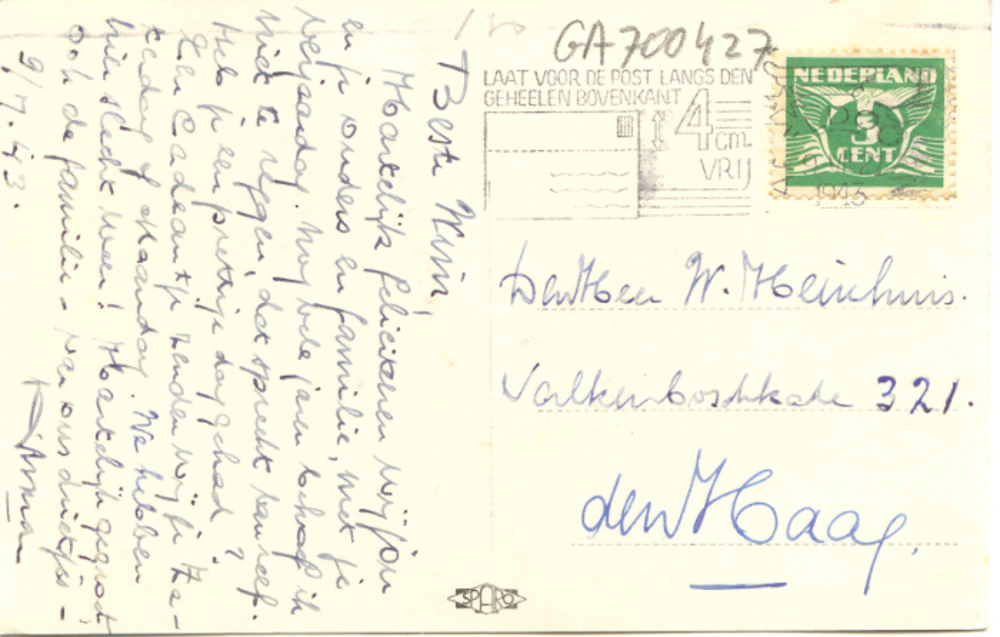 GA700427
LAAT VOOR DE POST LANGS DEN
GEHEELEN BOVENKANT
4
cm.
VRIJ
NEDERLAND
3
CENT
1943
Beste Wim,
Hartelijk feliciteren wij jou
en je ouders en familie, met je
verjaardag. Nog vele jaren behoef ik
niet te zeggen, dat spreekt van zelf.
Heb je een prettige dag gehad?
Een cadeautje zenden wij je Za-
terdag of Maandag. We hebben
hele slecht weer! Hartelijk gegroet
ook de familie - van ons drietjes -
9/7.43.
Den Heer W. Heinhuis.
Valkenboschkade 321.
den Haag.
SPARO